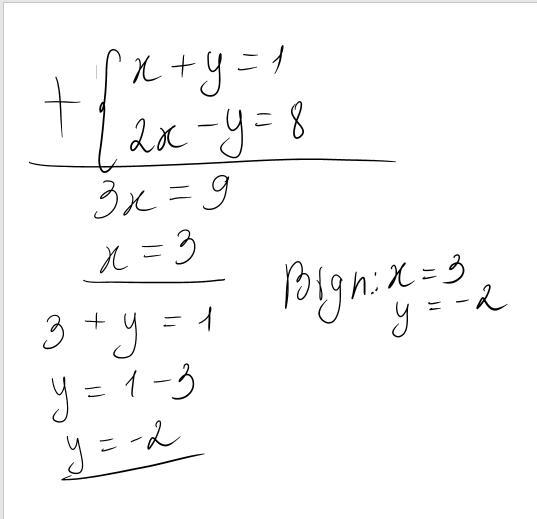 + { x + y = 1
2x - y = 8
3x = 9
x = 3
3 + y = 1
y = 1 - 3
y = -2
Відп: x = 3
y = -2